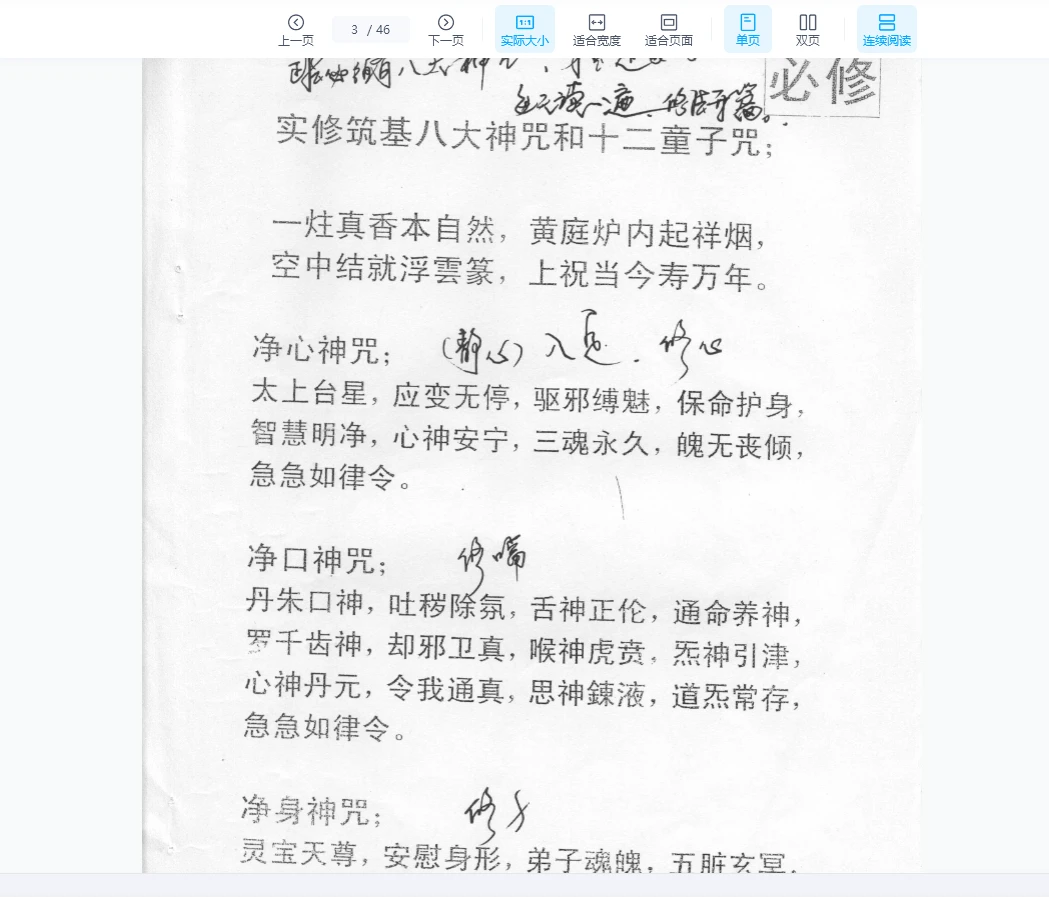 上一页
3 / 46
下一页
1:1
实际大小
适合宽度
适合页面
单页
双页
连续阅读
必修
实修筑基八大神咒和十二童子咒;
一炷真香本自然,黄庭炉内起祥烟,
空中结就浮雲篆,上祝当今寿万年。
净心神咒; (静心) 入 . 修心
太上台星,应变无停,驱邪缚魅,保命护身,
智慧明净,心神安宁,三魂永久,魄无丧倾,
急急如律令。
净口神咒; 修嘴
丹朱口神,吐秽除氛,舌神正伦,通命养神,
罗千齿神,却邪卫真,喉神虎贲,炁神引津,
心神丹元,令我通真,思神鍊液,道炁常存,
急急如律令。
净身神咒; 修身
灵宝天尊,安慰身形,弟子魂魄,五脏玄冥,